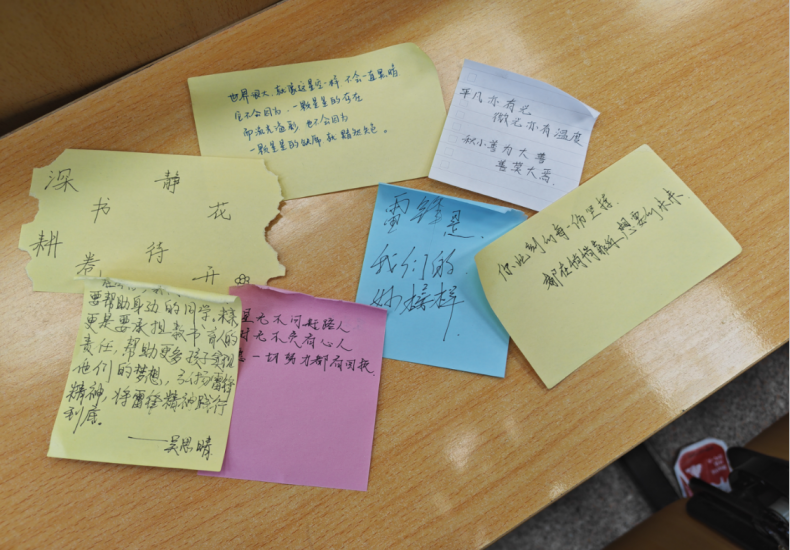 世界很大,就像这星空一样 不会一直黑暗
它不会因为 一颗星星的存在
而流光溢彩 也不会因为
一颗星星的缺席 就黯然失色。
平凡亦有光
微光亦有温度
积小善为大善
善莫大焉.
深 静
书 花
耕 待
卷 开
雷锋是
我们的
好榜样
你此刻的每一份坚持
都在悄悄靠近想要的未来
要帮助身边的同学,未来
更是要承担教书育人的
责任,帮助更多孩子实现
他们的梦想,弘扬雷锋
精神,将雷锋精神践行
到底。
——吴思晴
星光不问赶路人
时光不负有心人
一切努力都有回报